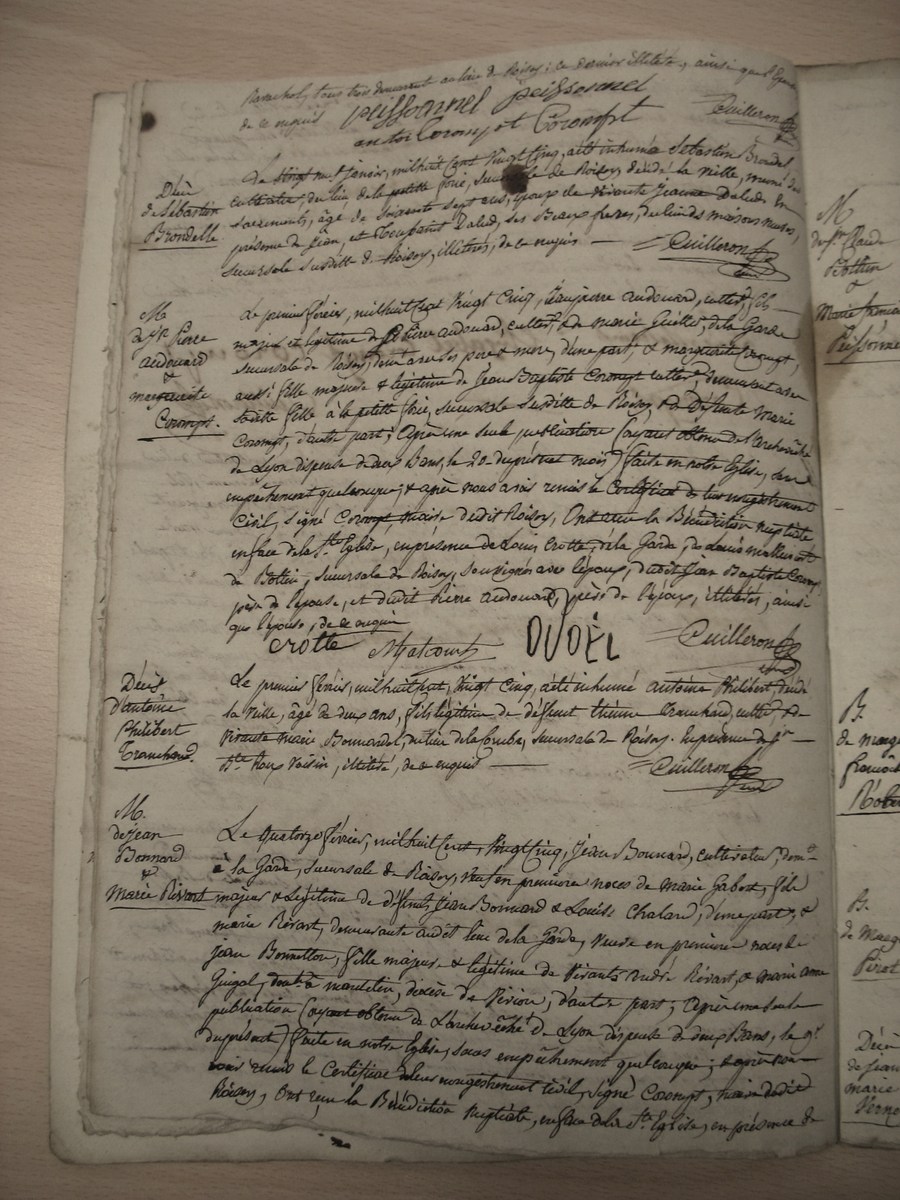 tous trois demeurant au lieu de Roisey; ce dernier illitéré, ainsi que l'Epouse
de ce enquis peissonnel peissonnel
antoi Corompt Corompt Cuilleron
Décès
de Sébastien
Brondelle
Le Vingt janvier, mil huit cent Vingt Cinq, a été inhumé Sébastien Brondel
cultivateur, du lieu de la petite foric, succursale de Roisey, décédé la veille, muni des
sacrements, âgé de soixante sept ans, époux de vivante Jeanne Dalud; En
présence de Jean, et Toussaint Dalud, ses beaux freres, du lieu des maisons neuves,
succursale susditte de Roisey, illitérés, de ce enquis. Cuilleron
M.
de Jn. Pierre
audouard
&
marguerite
Corompt.
Le premier février, mil huit cent Vingt Cinq, Jean pierre audouard, cultr., fils
majeur et légitime de Pierre audouard, cultr., & de marie Guillet, de la Garde
succursale de Roisey, demt. avec ses pere & mere, d'une part, & marguerite Corompt,
aussi fille majeure & légitime de Jean Baptiste Corompt cultr., demeurant avec
sa fille à la petite foric, succursale susditte de Roisey, & de Défunte Marie
Corompt, d'autre part; Après une seule publication (ayant obtenu de l'archevêché
de Lyon dispense de deux Bans, le 20 du présent mois) faite en notre Eglise, sans
empêchement quelconque; & après nous avoir remis le Certificat de leur engagement
Civil, signé Corompt, maire dudit Roisey, Ont reçu la Bénédiction nuptiale,
en face de la Ste. Eglise, en présence de Louis Crotte, de la Garde, de Louis
de Bottin, succursale de Roisey, soussignés avec l'époux, dudit Jean Baptiste Corompt,
père de l'épouse, et dudit Pierre audouard, père de l'époux, illitérés, ainsi
que l'épouse, de ce enquis
Crotte DUOEL Cuilleron
Décès
d'antoine
Philibert
Tranchand.
Le premier février, mil huit cent, Vingt Cinq, a été inhumé antoine Philibert, décédé
la veille, âgé de deux ans, fils légitime de défunt Etienne Tranchand, cultr. & de
vivante marie Bonnardel, du lieu de la Combe, succursale de Roisey. En présence de Jn.
Bte. Roux Voisin, illitéré, de ce enquis Cuilleron
M.
de Jean
Bonnard
&
Marie Rivart
Le quatorze février, mil huit Cent, Vingt Cinq, Jean Bonnard, cultivateur, domt.
à la Garde, succursale de Roisey, veuf en premiere noces de Marie Gabert, fils
majeur & légitime de défunts Jean Bonnard & Louise Chaland, d'une part, &
marie Rivart, demeurante audit lieu de la Garde, veuve en premiere noces de
Jean Bonnetton, fille majeure & légitime de vivants André Rivart, & marie anne
Guigal, domt. à marcelin, diocèse de Viviers, d'autre part; Après une seule
publication (ayant obtenu de l'archevêché de Lyon dispense de deux Bans, le 9e.
du présent) faite en notre Eglise, sans empêchement quelconque; & après nous
avoir remis le Certificat de leur engagement civil, signé Corompt, maire dudit
Roisey, Ont reçu la Bénédiction nuptiale, en face de la Ste. Eglise, en présence de
M
de Jn. Claude
Bottin
&
Marie
Peissonnel
B.
de marg
françoise
B.
de Marg
Décès
de Jean
marie